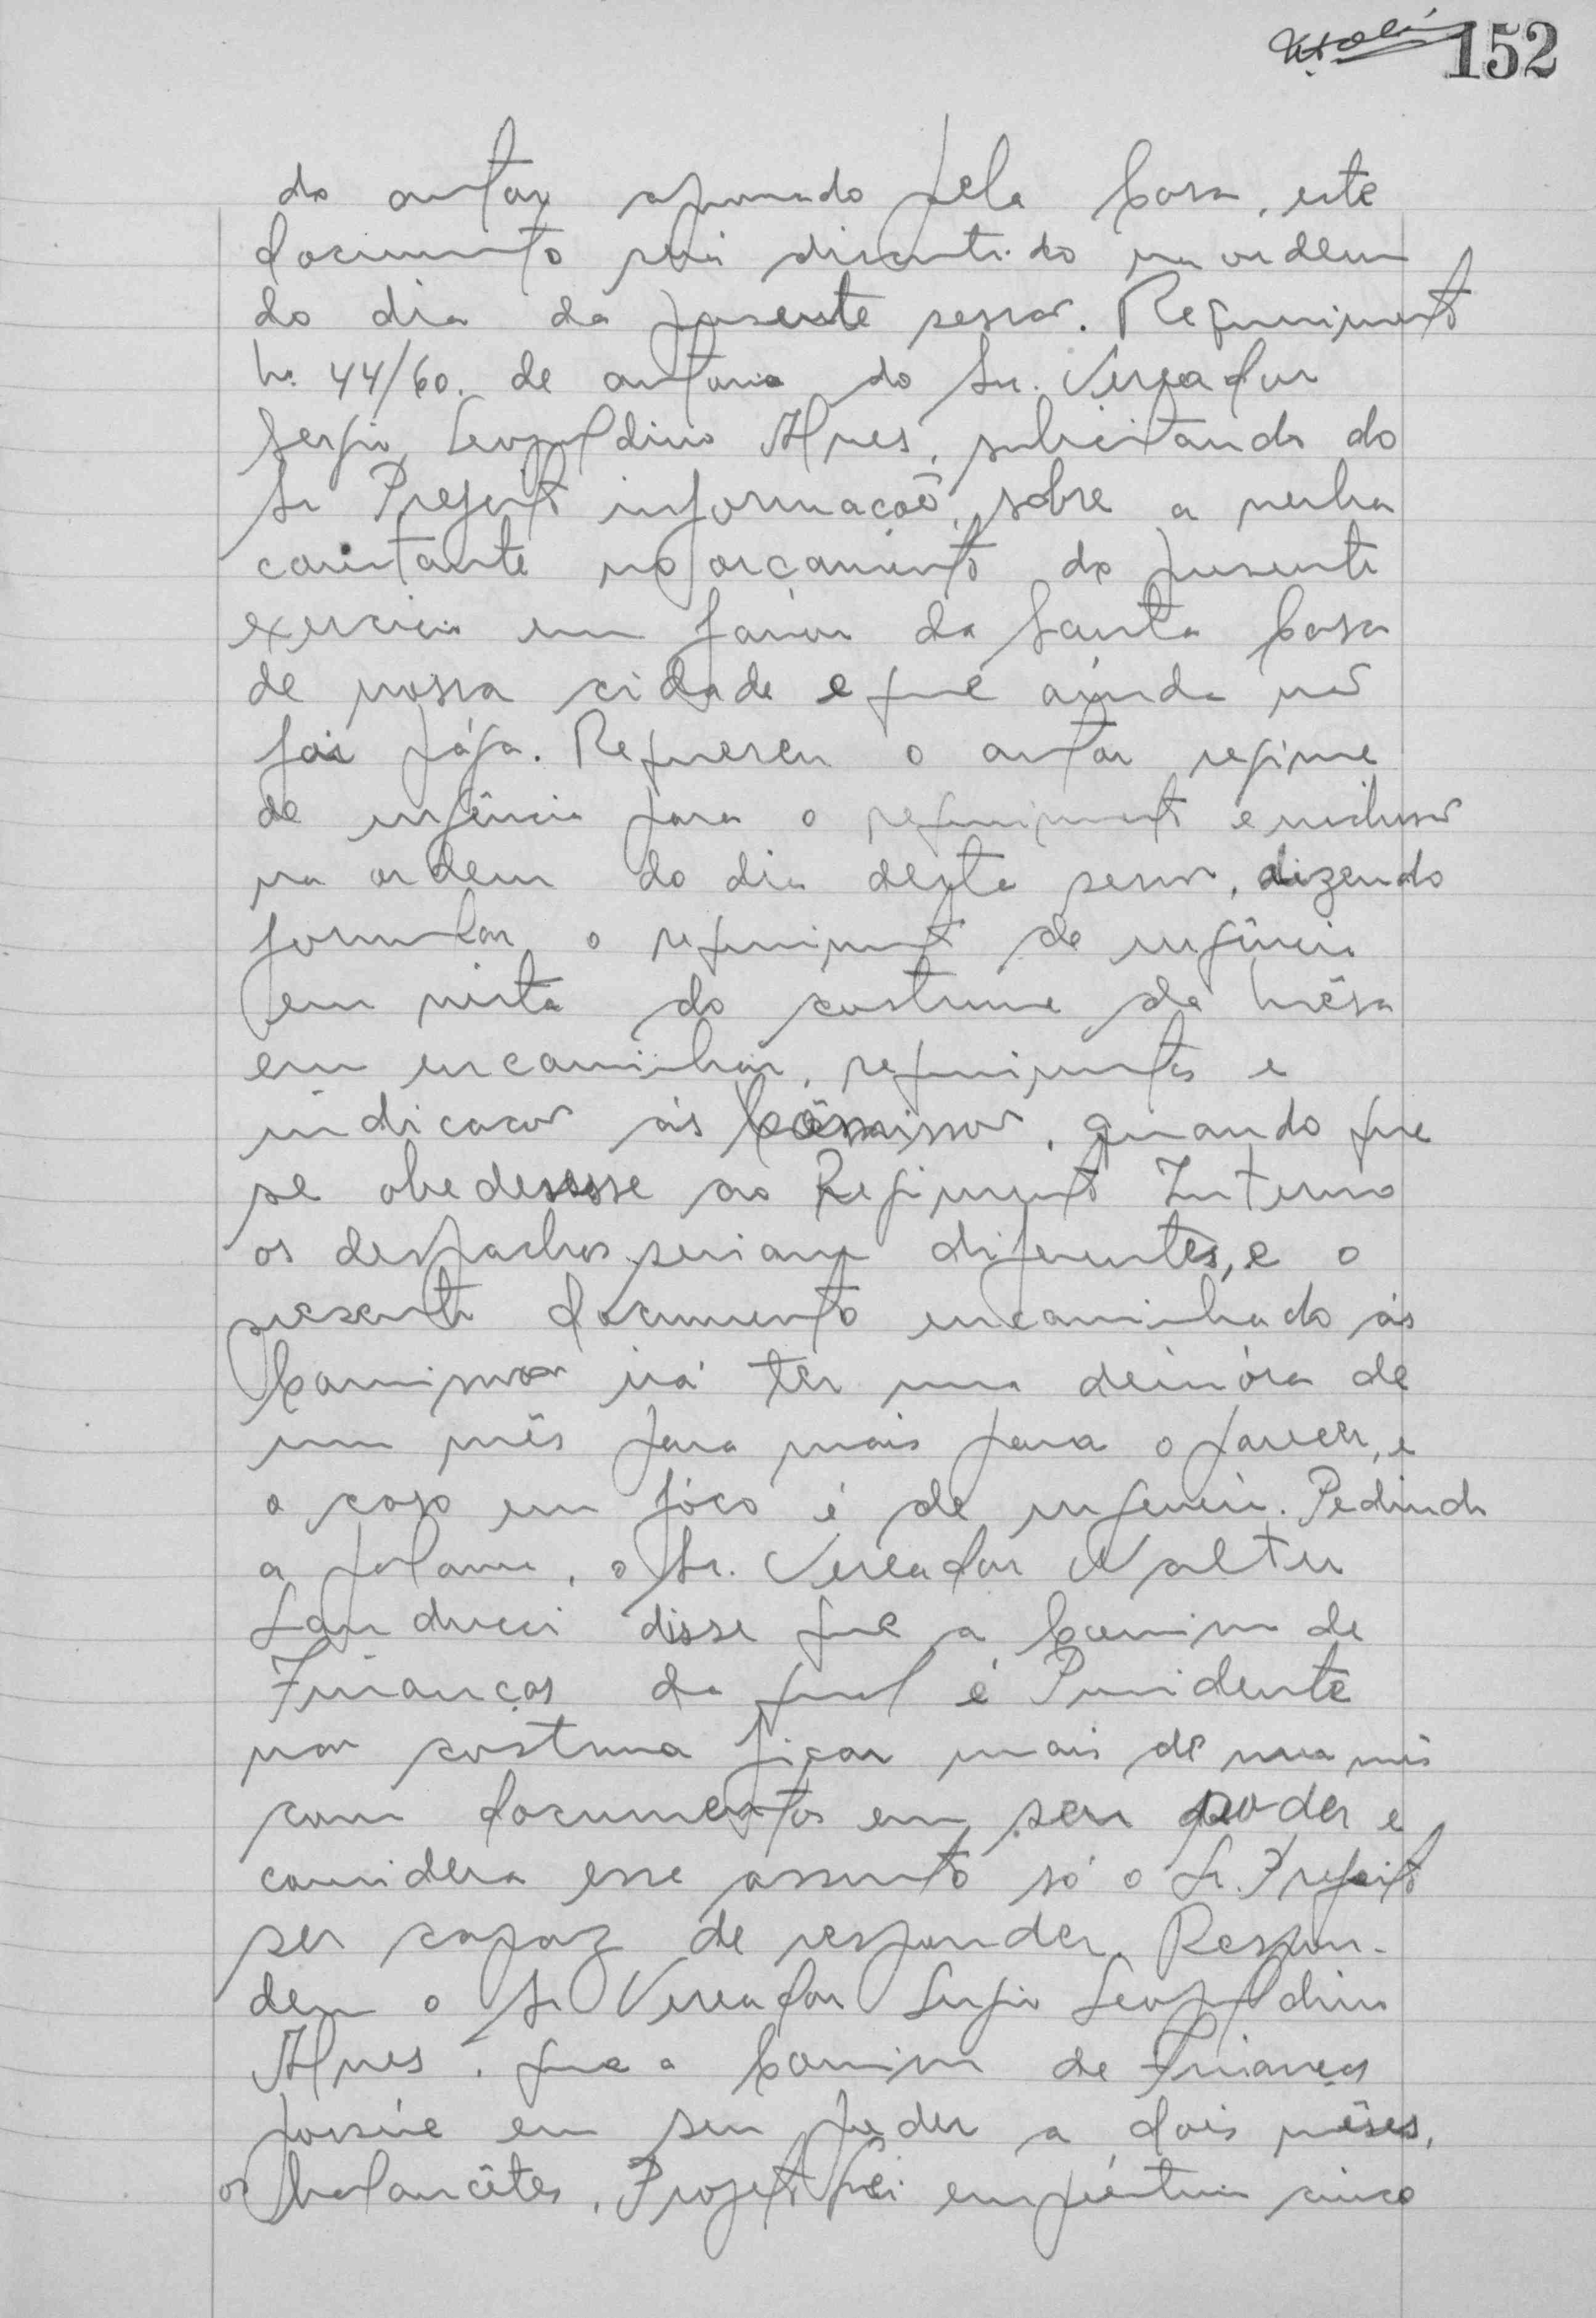 152
do autor aprovado pela Casa, este
documento foi discutido na ordem
do dia da presente sessão. Requerimento
nº 44/60. de autoria do Sr. Vereador
Sergio Leopoldino Alves, solicitando do
Sr Prefeito informação sobre a verba
constante no orçamento do presente
exercicio em favor da Santa Casa
de nossa cidade e que ainda não
foi paga. Requereu o autor regime
de urgência para o requerimento e inclusão
na ordem do dia desta sessão, dizendo
formular o requerimento de urgência
em vista do costume da mêsa
em encaminhar, requerimentos e
indicação ás Comissão, quando que
se obedesesse ao Regimento Interno
os despachos seriam diferentes, e o
presente documento encaminhado ás
Comissão irá ter uma demóra de
um mês para mais para o parecer, e
o caso em fóco é de urgencia. Pedindo
a palavra, o Sr. Vereador Walter
Landucci disse que a Comissão de
Finanças da qual é Presidente
não costuma ficar mais de um mês
com documentos em seu poder e
considera esse assunto só o Sr. Prefeito
ser capaz de responder. Respon-
deu o Sr Vereador Sergio Leopoldino
Alves, que a Comissão de Finanças
possúe em seu poder a dois mêses,
os balancêtes, Projeto Lei empréstimo cinco